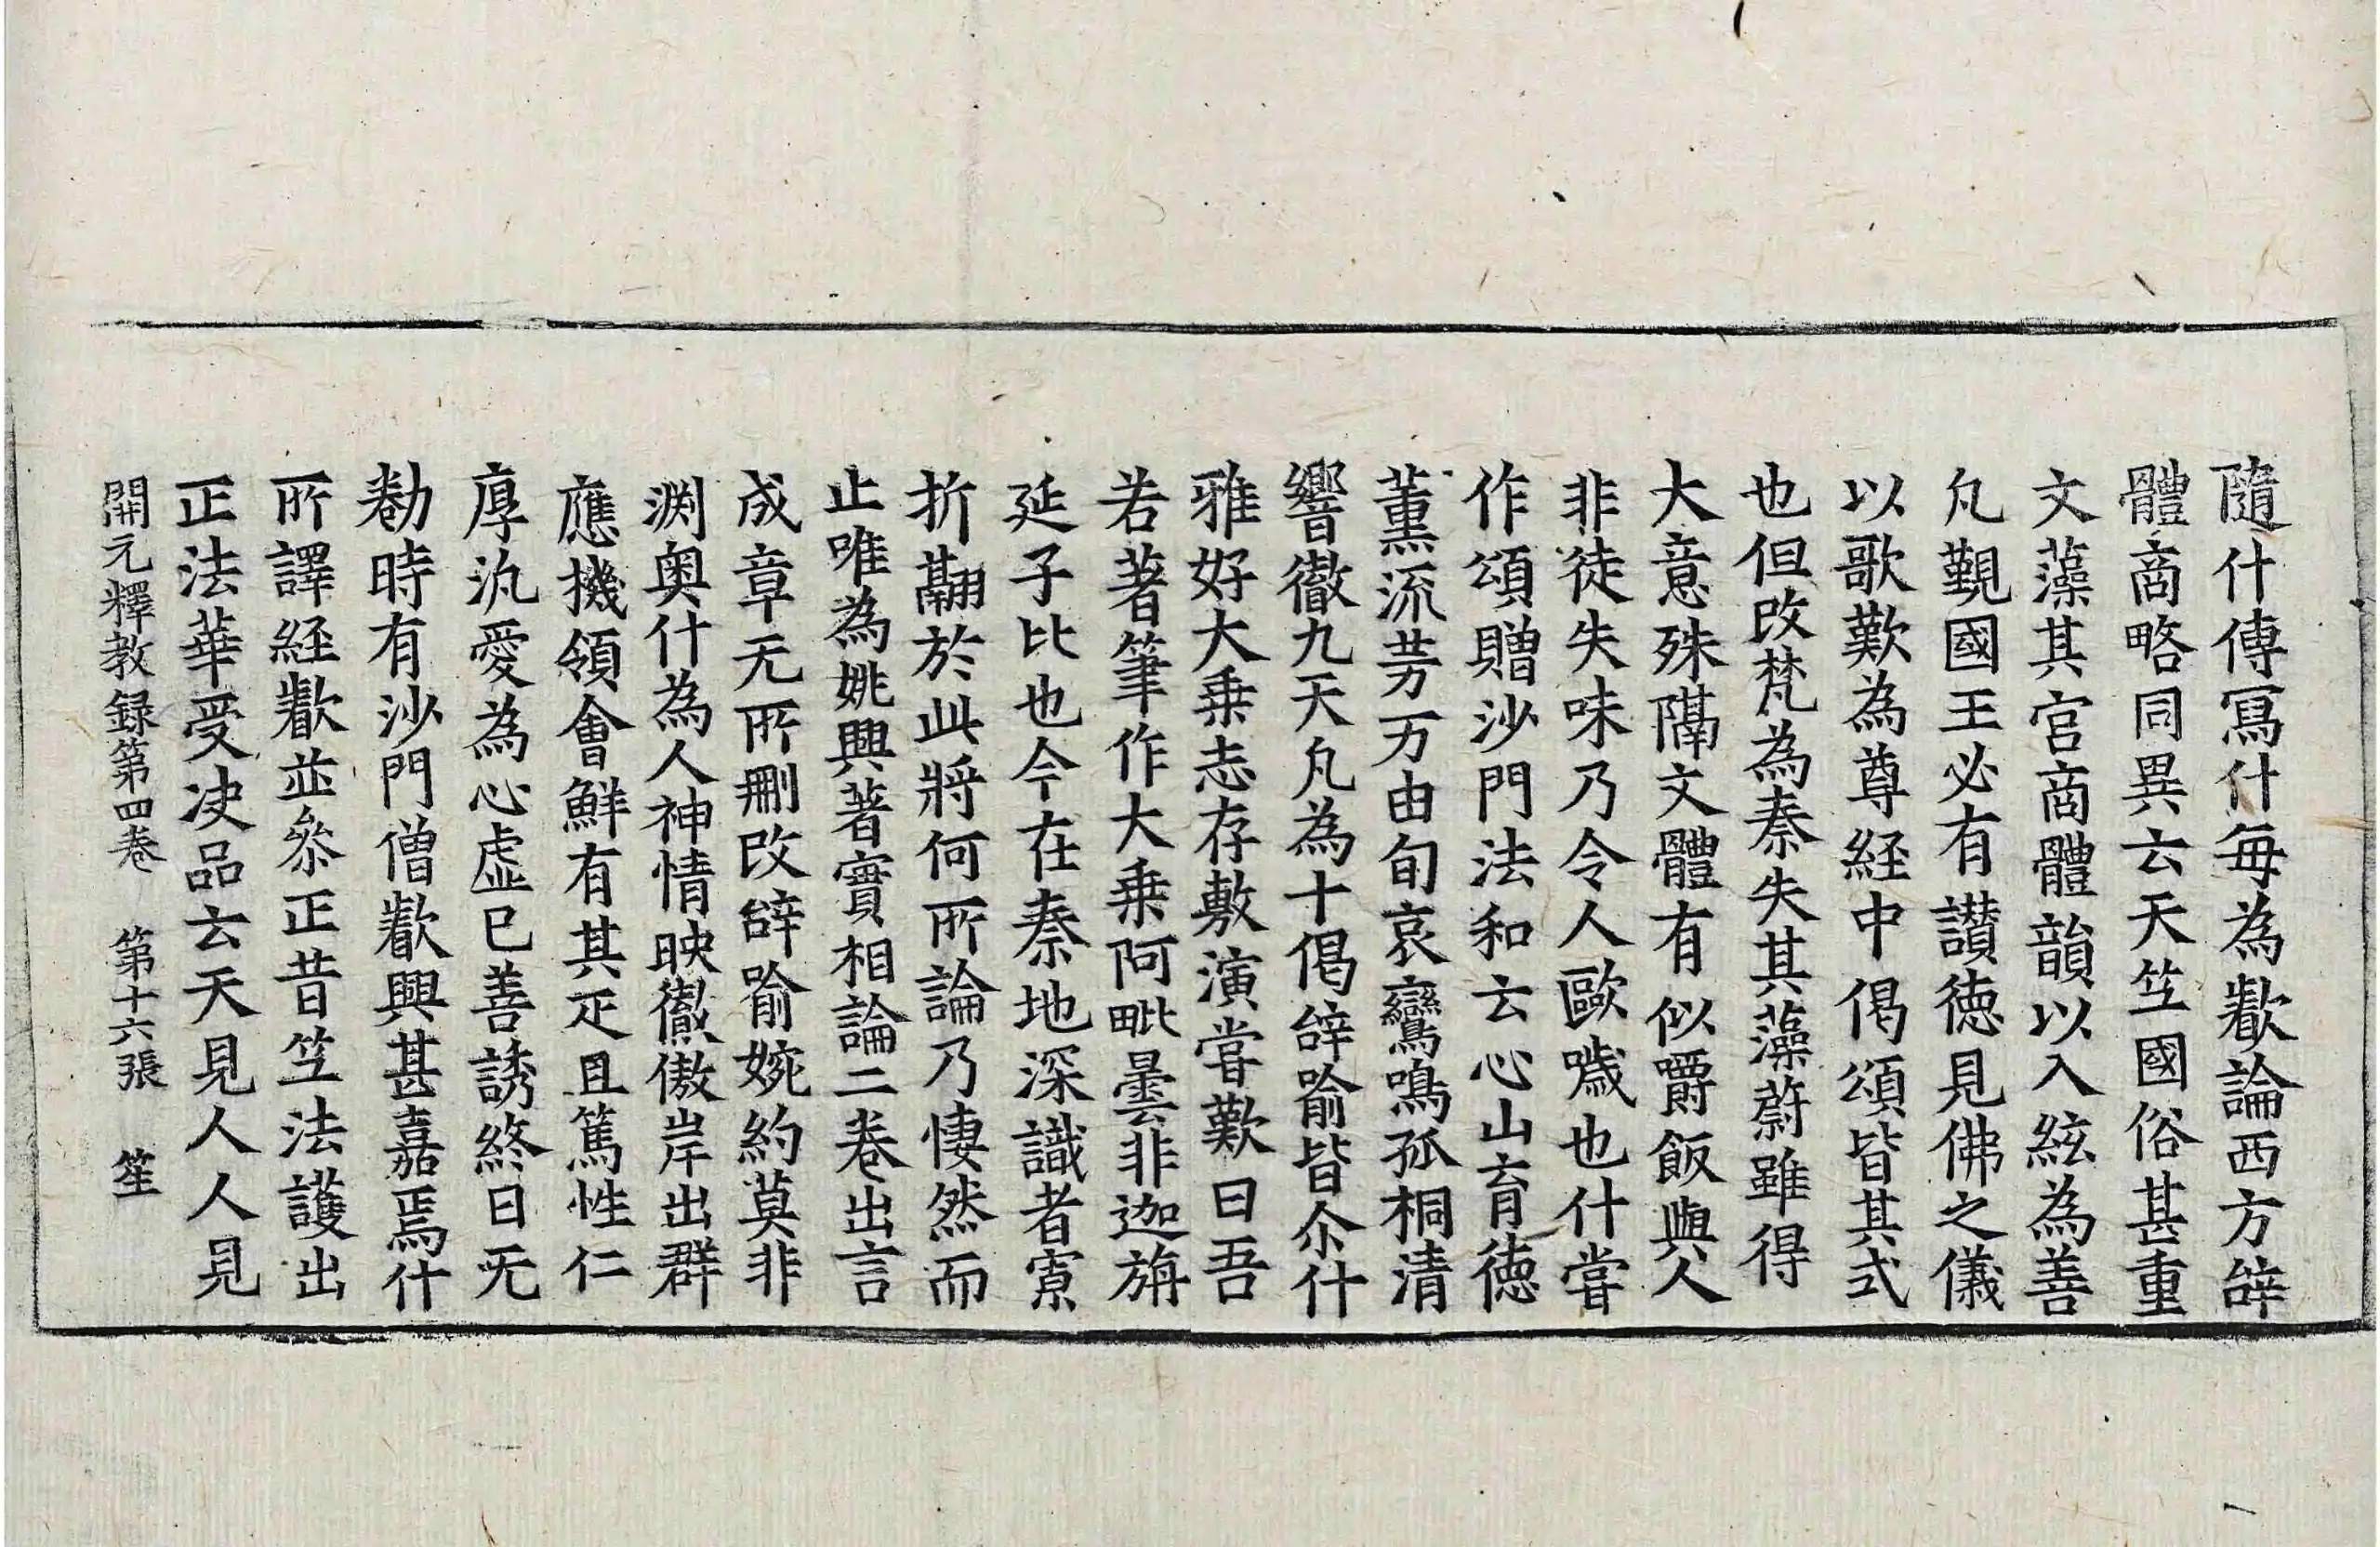 隨什傳寫什每為叡論西方辝
體商略同異云天竺國俗甚重
文藻其宮商體韻以入絃為善
凡覲國王必有讃德見佛之儀
以歌歎為尊経中偈頌皆其式
也但改梵為秦失其藻蔚雖得
大意殊隔文體有似嚼飯與人
非徒失味乃令人歐噦也什甞
作頌贈沙門法和云心山育德
薰流芳万由旬哀鸞鳴孤桐清
響徹九天凡為十偈辝喻皆尒什
雅好大乗志存敷演甞歎曰吾
若著筆作大乗阿毗曇非迦旃
延子比也今在秦地深識者寡
折翮於此將何所論乃悽然而
止唯為姚興著實相論二卷出言
成章无所刪改辝喻婉約莫非
渕奥什為人神情映徹傲岸出群
應機領會鮮有其疋且篤性仁
厚汎愛為心虚已善誘終日无
勌時有沙門僧叡興甚嘉焉什
所譯経叡並叅正昔竺法護出
正法華受决品云天見人人見
開元釋教録第四卷　第十六張　笙